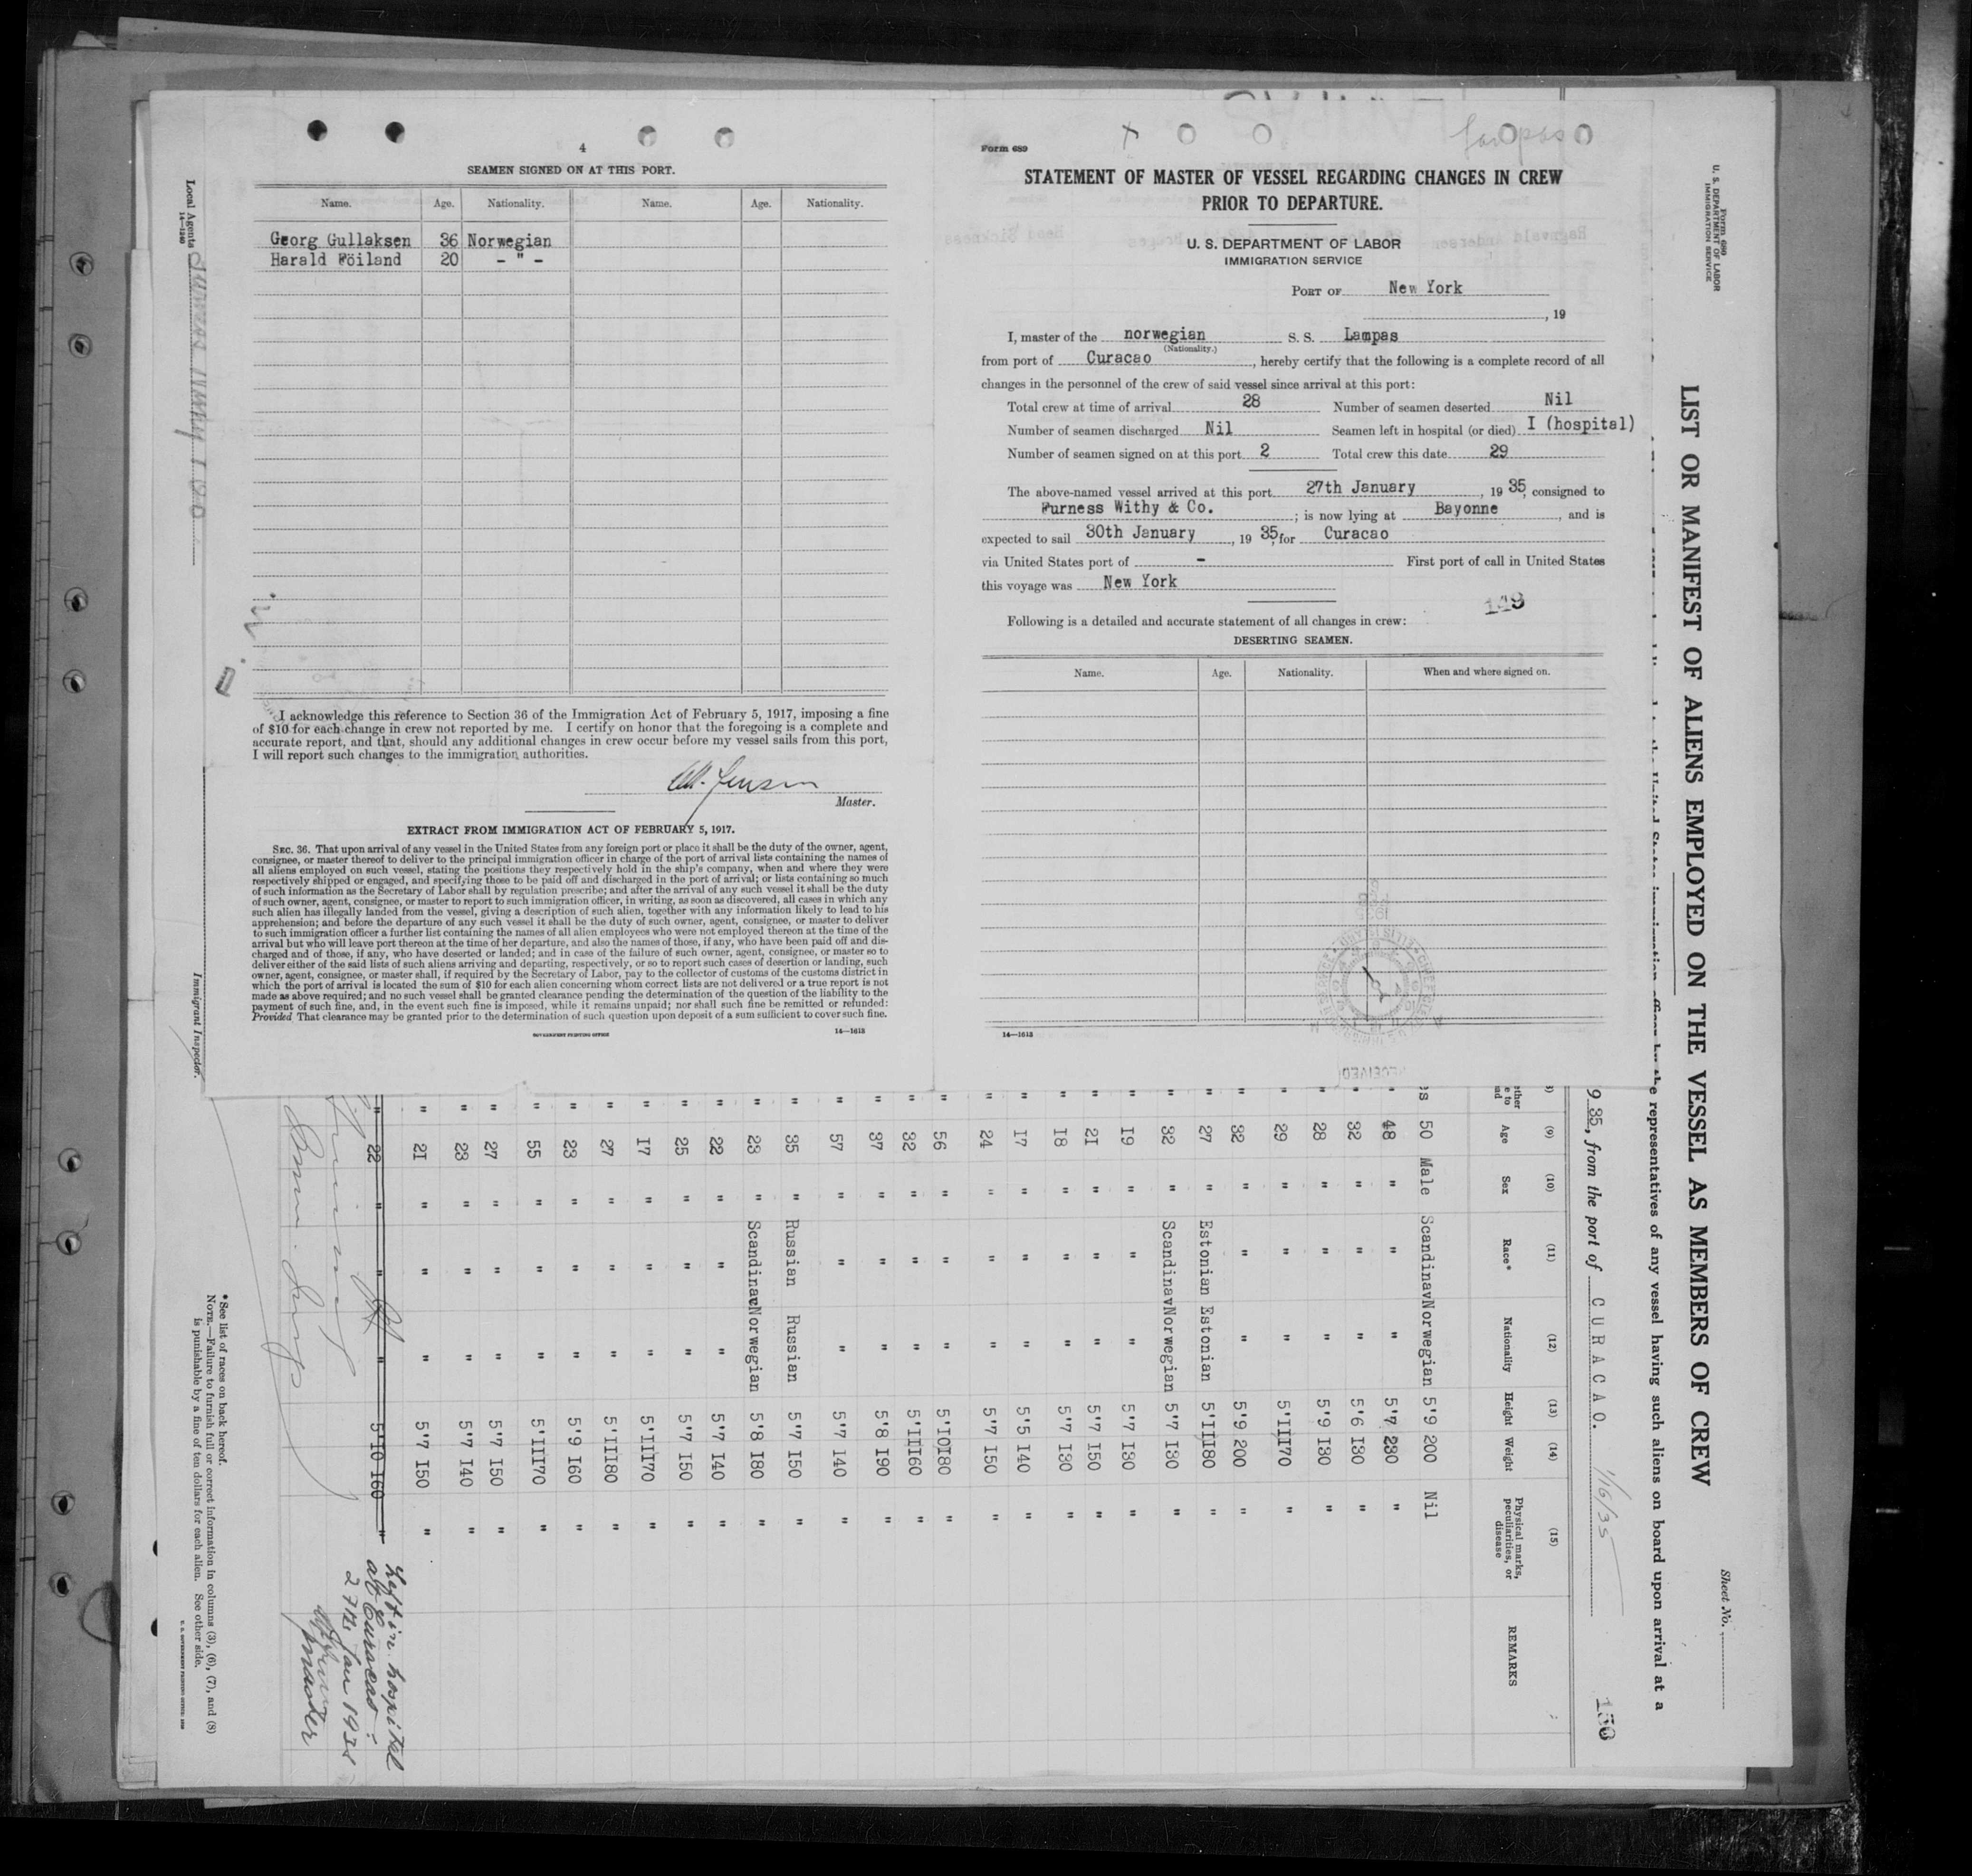 4
SEAMEN SIGNED ON AT THIS PORT.
Name. Age. Nationality. Name. Age. Nationality.
Georg Gullaksen 36 Norwegian
Harald Föiland 20 - " -
I acknowledge this reference to Section 36 of the Immigration Act of February 5, 1917, imposing a fine
of $10 for each change in crew not reported by me. I certify on honor that the foregoing is a complete and
accurate report, and that, should any additional changes in crew occur before my vessel sails from this port,
I will report such changes to the immigration authorities.
Master.
EXTRACT FROM IMMIGRATION ACT OF FEBRUARY 5, 1917.
SEC. 36. That upon arrival of any vessel in the United States from any foreign port or place it shall be the duty of the owner, agent,
consignee, or master thereof to deliver to the principal immigration officer in charge of the port of arrival lists containing the names of
all aliens employed on such vessel, stating the positions they respectively hold in the ship's company, when and where they were
respectively shipped or engaged, and specifying those to be paid off and discharged in the port of arrival; or lists containing so much
of such information as the Secretary of Labor shall by regulation prescribe; and after the arrival of any such vessel it shall be the duty
of such owner, agent, consignee, or master to report to such immigration officer, in writing, as soon as discovered, all cases in which any
such alien has illegally landed from the vessel, giving a description of such alien, together with any information likely to lead to his
apprehension; and before the departure of any such vessel it shall be the duty of such owner, agent, consignee, or master to deliver
to such immigration officer a further list containing the names of all alien employees who were not employed thereon at the time of the
arrival but who will leave port thereon at the time of her departure, and also the names of those, if any, who have been paid off and dis-
charged and of those, if any, who have deserted or landed; and in case of the failure of such owner, agent, consignee, or master so to
deliver either of the said lists of such aliens arriving and departing, respectively, or so to report such cases of desertion or landing, such
owner, agent, consignee, or master shall, if required by the Secretary of Labor, pay to the collector of customs of the customs district in
which the port of arrival is located the sum of $10 for each alien concerning whom correct lists are not delivered or a true report is not
made as above required; and no such vessel shall be granted clearance pending the determination of the question of the liability to the
payment of such fine, and, in the event such fine is imposed, while it remains unpaid; nor shall such fine be remitted or refunded:
Provided That clearance may be granted prior to the determination of such question upon deposit of a sum sufficient to cover such fine.
GOVERNMENT PRINTING OFFICE 14—1613
Form 689
Lampas
STATEMENT OF MASTER OF VESSEL REGARDING CHANGES IN CREW
PRIOR TO DEPARTURE.
U. S. DEPARTMENT OF LABOR
IMMIGRATION SERVICE
PORT OF New York
, 19
I, master of the norwegian S. S. Lampas
(Nationality.)
from port of Curacao, hereby certify that the following is a complete record of all
changes in the personnel of the crew of said vessel since arrival at this port:
Total crew at time of arrival 28 Number of seamen deserted Nil
Number of seamen discharged Nil Seamen left in hospital (or died) I (hospital)
Number of seamen signed on at this port 2 Total crew this date 29
The above-named vessel arrived at this port 27th January, 19 35, consigned to
Furness Withy & Co.; is now lying at Bayonne, and is
expected to sail 30th January, 19 35, for Curacao
via United States port of - First port of call in United States
this voyage was New York
149
Following is a detailed and accurate statement of all changes in crew:
DESERTING SEAMEN.
Name. Age. Nationality. When and where signed on.
14—1613
RECEIVED
Form 680
U. S. DEPARTMENT OF LABOR
IMMIGRATION SERVICE
Sheet No.
LIST OR MANIFEST OF ALIENS EMPLOYED ON THE VESSEL AS MEMBERS OF CREW
representatives of any vessel having such aliens on board upon arrival at a
9 35, from the port of CURACAO. 1/16/35
150
(9) (10) (11) (12) (13) (14) (15)
Age Sex Race* Nationality Height Weight Physical marks, peculiarities, or disease REMARKS
50 Male Scandinav Norwegian 5'9 200 Nil
" 48 " " " 5'7 230 "
" 32 " " " 5'6 I30 "
" 28 " " " 5'9 I30 "
" 29 " " " 5'III70 "
" 32 " " " 5'9 200 "
" 27 " Estonian Estonian 5'III80 "
" 32 " Scandinav Norwegian 5'7 I30 "
" I9 " " " 5'7 I30 "
" 2I " " " 5'7 I50 "
" I8 " " " 5'7 I30 "
" I7 " " " 5'5 I40 "
" 24 " " " 5'7 I50 "
" 56 " " " 5'I0I80 "
" 32 " " " 5'III60 "
" 37 " " " 5'8 I90 "
" 57 " " " 5'7 I40 "
" 35 " Russian Russian 5'7 I50 "
" 23 " Scandinav Norwegian 5'8 I80 "
" 22 " " " 5'7 I40 "
" 25 " " " 5'7 I50 "
" I7 " " " 5'III70 "
" 27 " " " 5'III80 "
" 23 " " " 5'9 I60 "
" 55 " " " 5'III70 "
" 27 " " " 5'7 I50 "
" 23 " " " 5'7 I40 "
" 2I " " " 5'7 I50 "
" 22 " " " 5'I0 I60 "
Left in hospital
at Curacao
27th Jan 1935
Master
*See list of races on back hereof.
NOTE.—Failure to furnish full or correct information in columns (3), (6), (7), and (8)
is punishable by a fine of ten dollars for each alien. See other side.
Local Agents Furness Withy & Co
14—1240
Immigrant Inspector.